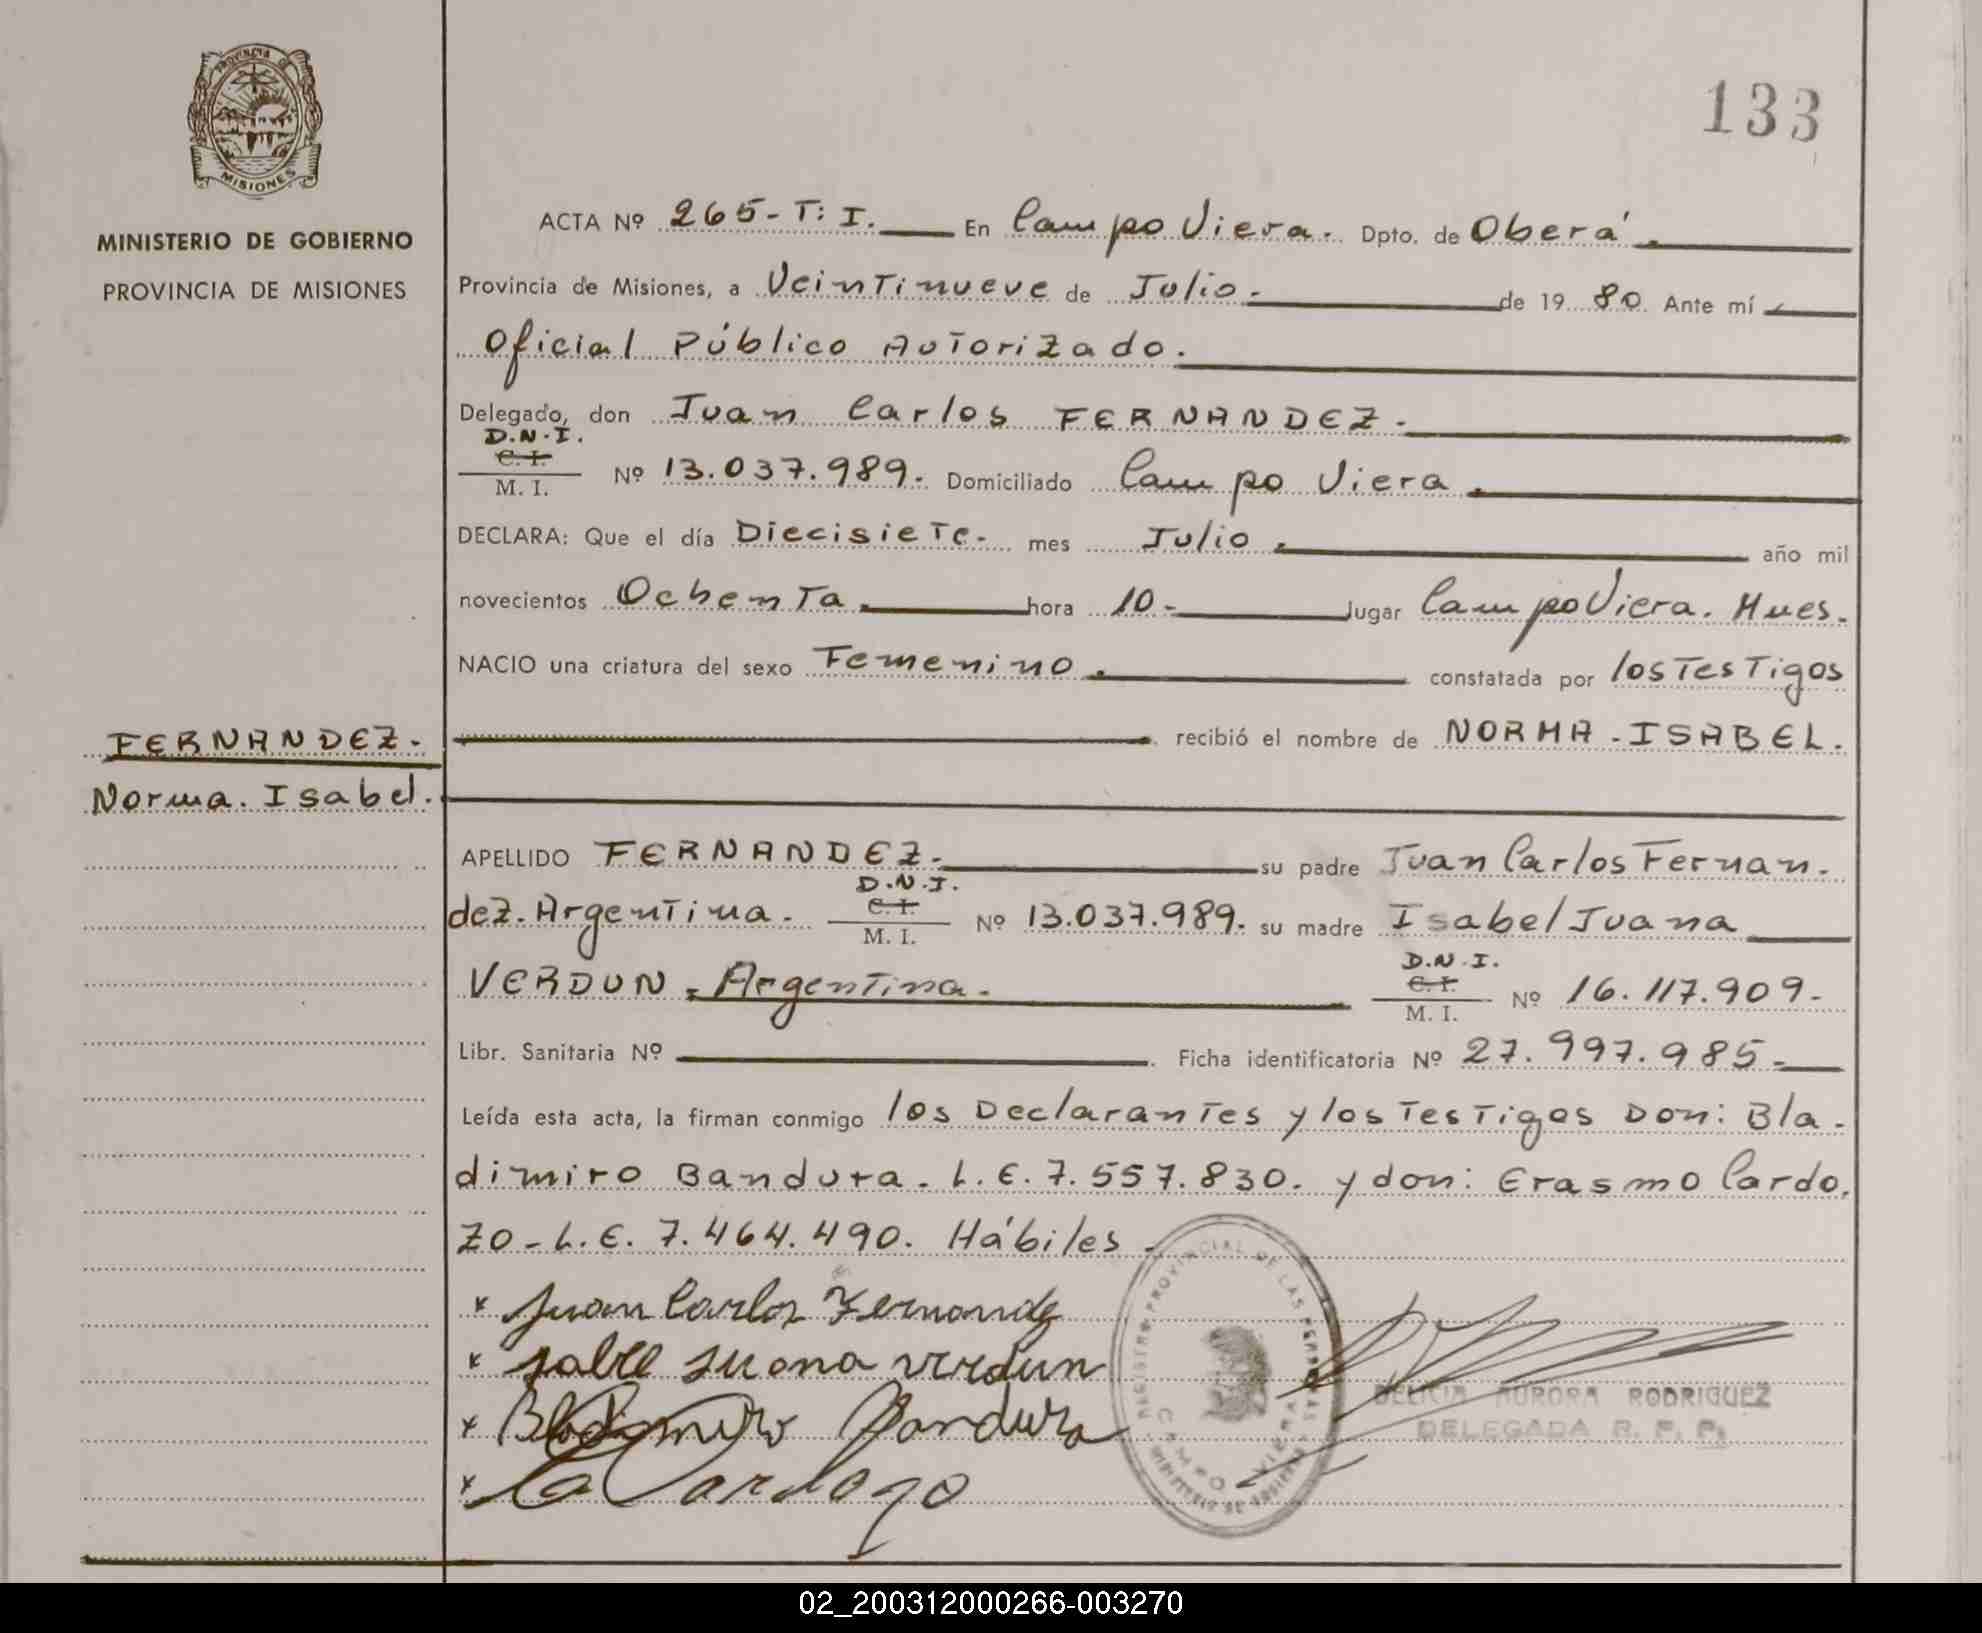 133
PROVINCIA DE
MISIONES
MINISTERIO DE GOBIERNO
PROVINCIA DE MISIONES
FERNANDEZ.
Norma. Isabel.
ACTA Nº 265-T: I. En Campo Viera. Dpto. de Oberá.
Provincia de Misiones, a Veintinueve de Julio. de 19 80. Ante mí
Oficial Público Autorizado.
Delegado, don Juan Carlos FERNANDEZ.
D.N.I.
C. I.
M. I. Nº 13.037.989. Domiciliado Campo Viera.
DECLARA: Que el día Diecisiete. mes Julio. año mil
novecientos Ochenta. hora 10. lugar Campo Viera. Mnes.
NACIO una criatura del sexo Femenino. constatada por los Testigos
recibió el nombre de NORMA-ISABEL.
APELLIDO FERNANDEZ. su padre Juan Carlos Fernan.
D.N.I.
C. I.
dez. Argentina. M. I. Nº 13.037.989. su madre Isabel Juana
D.N.I.
C. I.
VERDUN. Argentina. M. I. Nº 16.117.909.
Libr. Sanitaria Nº . Ficha identificatoria Nº 27.997.985.
Leída esta acta, la firman conmigo los Declarantes y los Testigos Don: Bla.
dimiro Bandura. L.E. 7.557.830. y don: Erasmo Cardo.
zo-L.E. 7.464.490. Hábiles.
x Juan Carlos Fernandez
x Juana verdun
x Bladimiro Bandura
x Cardozo
REGISTRO PROVINCIAL DE LAS PERSONAS
CAMPO VIERA
MINISTERIO DE GOBIERNO
DELICIA AURORA RODRIGUEZ
DELEGADA R. P. P.
02_200312000266-003270